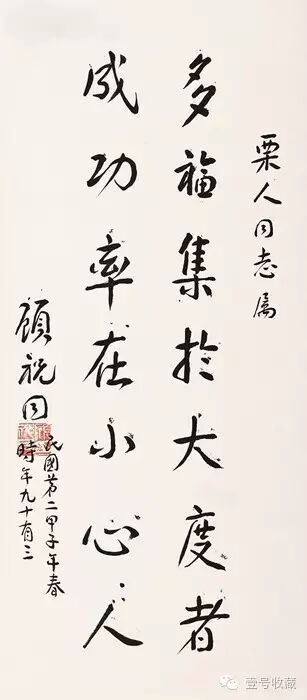 栗人同志属
多福集於大度者
成功率在小心人
顾祝同
民國第二甲子年春
時年九十有三
壹号收藏